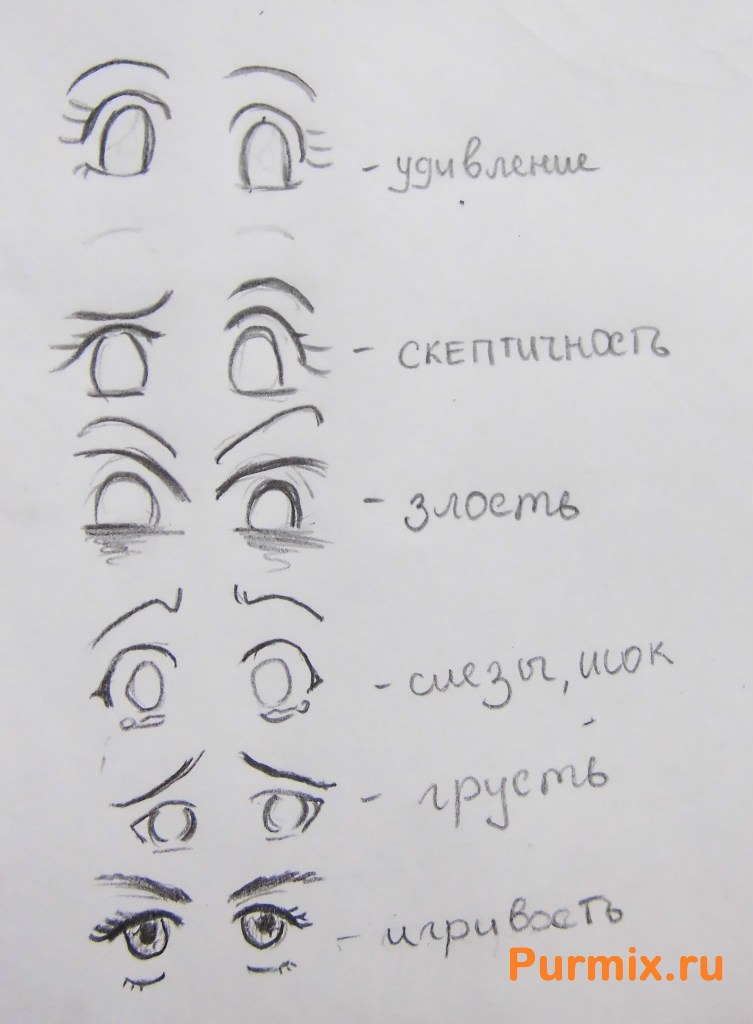 - удивление
- скептичность
- злость
- слезы, шок
- грусть
- игривость
Purmix.ru